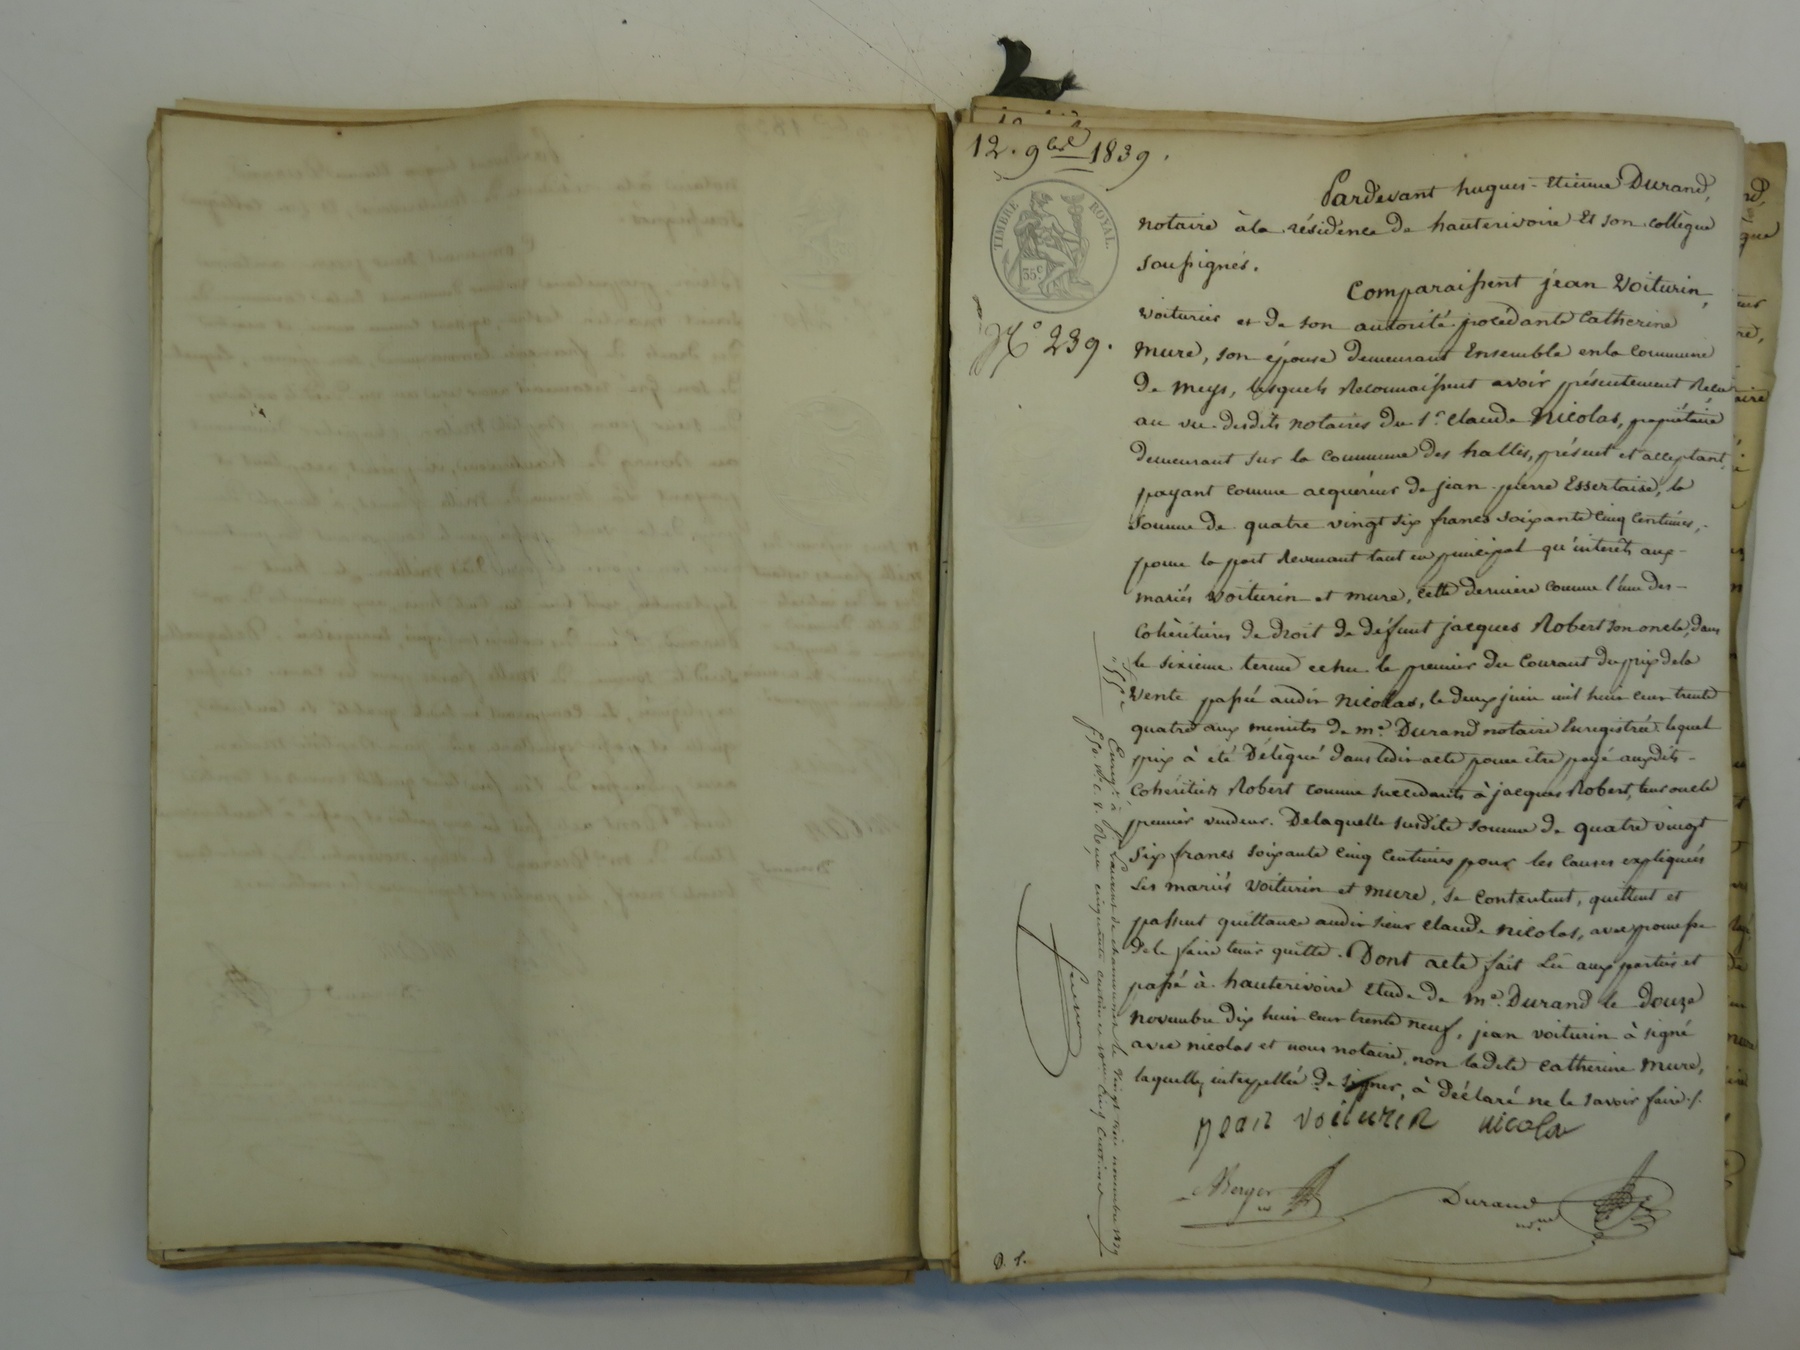 12. 9bre 1839.
TIMBRE ROYAL.
35c
No 239.
Pardevant hugues-Etienne Durand,
notaire à la résidence de hauterivoire Et son collègue
soussignés.
Comparaissent jean Voiturin,
voiturier et de son autorité procédante Catherine
Mure, son épouse demeurant Ensemble en la Commune
de Meys, lesquels Reconnaissent avoir présentement Reçu
au vu desdits notaires du Sr Claude Nicolas, propriétaire
demeurant sur la Commune des halles, présent et acceptant,
payant comme acquéreur de jean-pierre Essertaise, la
somme de quatre vingt six francs soixante cinq centimes,
pour la part Revenant tant en principal qu'interêts aux
mariés Voiturin et Mure, cette dernière comme l'une des
Cohéritières de droit de défunt jacques Robert son oncle, dans
le sixieme terme echu le premier du Courant du prix de la
Vente passée audit Nicolas, le deux juin mil huit cent trente
quatre aux minutes de Me Durand notaire Enregistrée lequel
prix à été Délégué dans ledit acte pour être payé auxdits
Cohéritiers Robert comme succédants à jacques Robert, leur oncle
premier vendeur. De laquelle susdite somme de quatre vingt
six francs soixante cinq centimes pour les causes expliquées
Les mariés Voiturin et Mure, se contentent, quittent et
passent quittance audit sieur Claude Nicolas, avec promesse
de le faire tenir quitte. Dont acte fait Lu aux parties et
passé à hauterivoire Etude de Me. Durand le Douze
novembre dix huit cent trente neuf, jean voiturin à signé
avec nicolas et nous notaire, non ladite Catherine Mure,
laquelle, interpellée de signer, à déclaré ne le savoir faire./.
jean voiturin nicolas
Berger
Durand
Enregé à St Laurent de chamousset le Vingt trois novembre 1839
fo 50. Ro. C. 8. Reçu cinquante centimes
D. S.